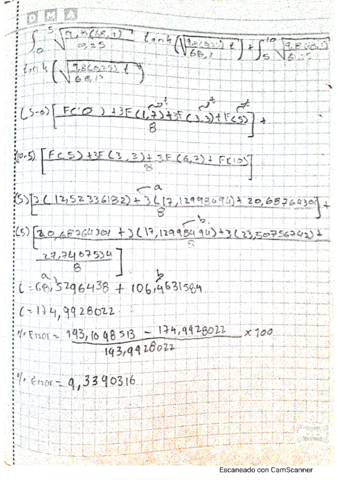 D M A
∫₀⁵ √(9,8(68,1)/0,25) tanh(√(9,8(0,25)/68,1) t) + ∫₅¹⁰ √(9,8(68,1)/0,25)
tanh(√(9,8(0,25)/68,1) t)
(5-0) [F(0) + 3F(1,7) + 3F(3,3) + F(5) / 8] +
(10-5) [F(5) + 3F(3,3) + 3F(6,7) + F(10) / 8]
(5) [3(12,52336182) + 3(17,12998494) + 20,68764301 / 8] +
(5) [20,68764301 + 3(17,12998494) + 3(23,50756742) +
27,7407534 / 8]
a b
C = 68,5296438 + 106,4631584
C = 174,9928022
% Error = 193,1098513 - 174,9928022 / 193,9928022 × 100
% Error = 9,3390316
Escaneado con CamScanner